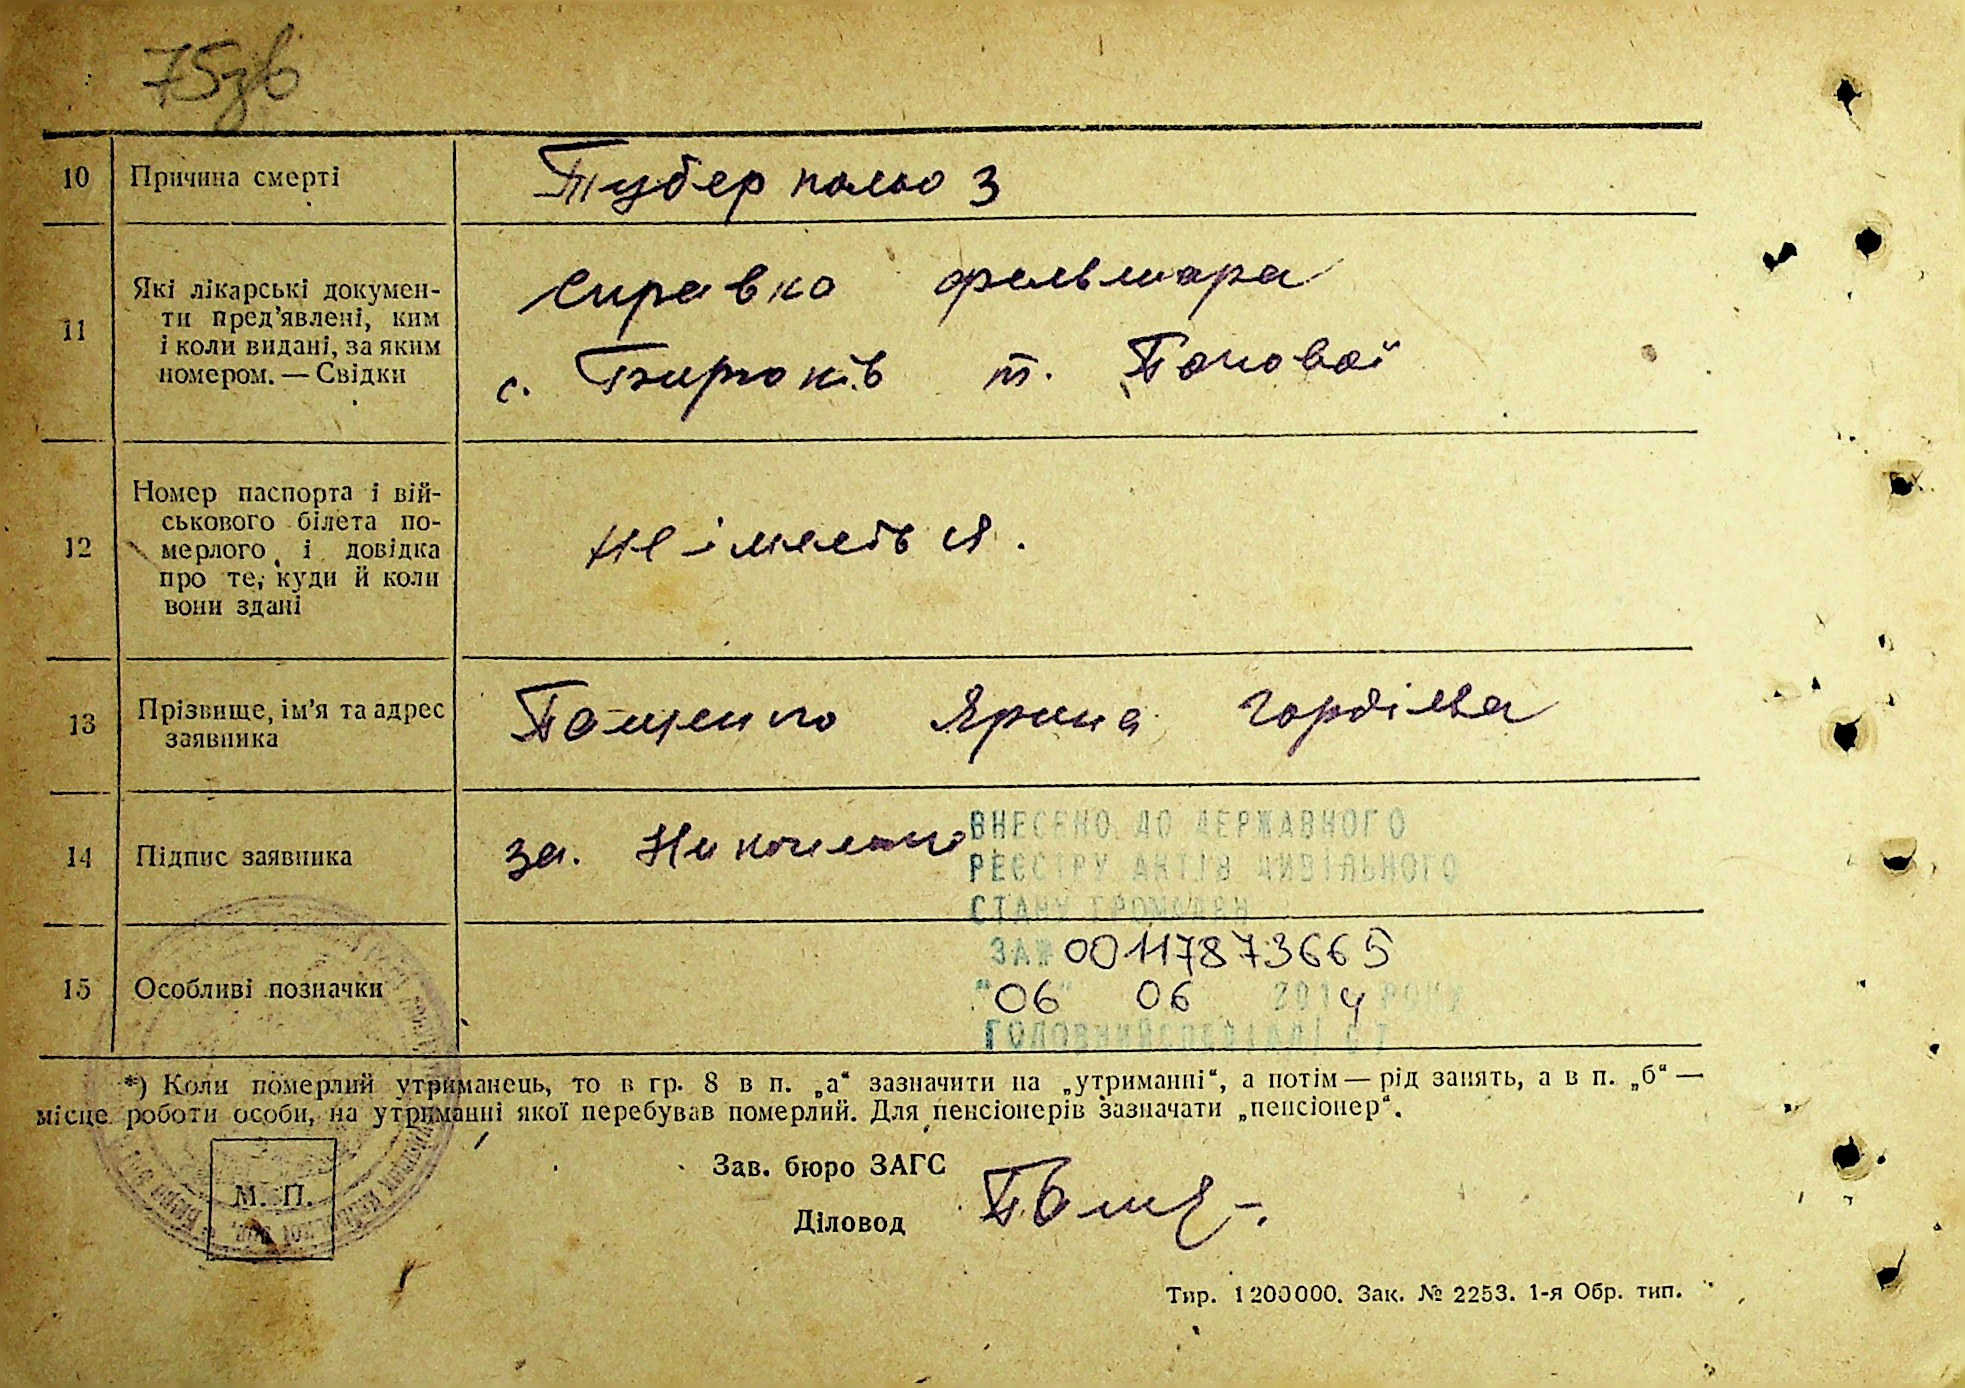 75зв
10 Причина смерті Туберкольоз
11 Які лікарські докумен-
ти пред'явлені, ким
і коли видані, за яким
номером. — Свідки
Справка фельшара
с. Бирюків т.
12 Номер паспорта і вій-
ськового білета по-
мерлого і довідка
про те, куди й коли
вони здані
не імаеться.
13 Прізвище, ім'я та адрес
заявника
Ярина Гордієва
14 Підпис заявника за.
ВНЕСЕНО ДО ДЕРЖАВНОГО
РЕЄСТРУ АКТІВ ЦИВІЛЬНОГО
СТАНУ ГРОМАДЯН
15 Особливі позначки
ЗА № 00117873665
"06" 06 2014 РОКУ
ГОЛОВНИЙ СПЕЦІАЛІСТ
*) Коли померлий утриманець, то в гр. 8 в п. „а“ зазначити на „утриманні“, а потім — рід занять, а в п. „б“ —
місце роботи особи, на утриманні якої перебував померлий. Для пенсіонерів зазначати „пенсіонер“.
Зав. бюро ЗАГС
М. П.
Діловод
Тир. 1200000. Зак. № 2253. 1-я Обр. тип.